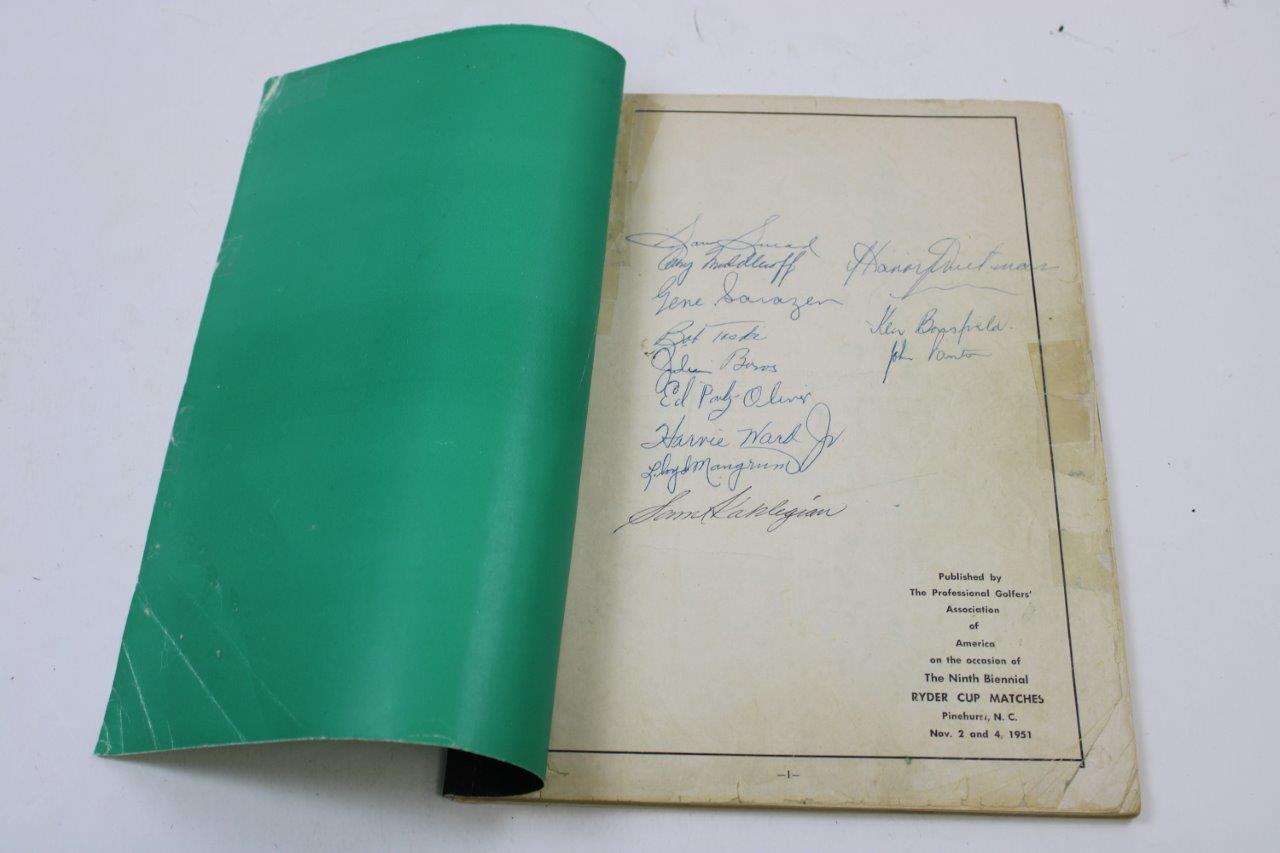 Sam Snead
Cary Middlecoff
Gene Sarazen
Bob Toski
Julius Boros
Ed Porky Oliver
Harvie Ward Jr
Lloyd Mangrum
Sam
Harry
Ken Bousfield.
John Panton
Published by
The Professional Golfers'
Association
of
America
on the occasion of
The Ninth Biennial
RYDER CUP MATCHES
Pinehurst, N. C.
Nov. 2 and 4, 1951
—1—